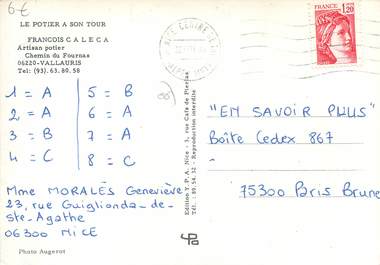 6€
LE POTIER A SON TOUR
FRANCOIS CALECA
Artisan potier
Chemin du Fournas
06220-VALLAURIS
Tel: (93).63.80.58
1 = A
2 = A
3 = B
4 = C
5 = B
6 = A
7 = A
8 = C
Mme MORALÈS Geneviève
23, rue Guiglionda-de-
ste-Agathe
06300 NICE
Photo Augerot
Edition Y.P.A. Nice - 3, rue Cafe de Pierlas
Tél.: 89.54.32 - Reproduction interdite
FRANCE
1,20
"EN SAVOIR PLUS"
Boîte Cedex 867
75300 Paris Brune